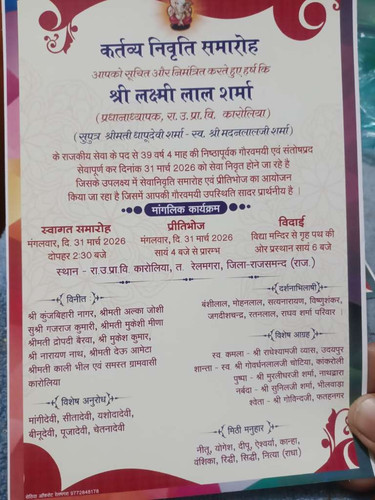 कर्तव्य निवृति समारोह
आपको सूचित और निमंत्रित करते हुए हर्ष कि
श्री लक्ष्मी लाल शर्मा
(प्रधानाध्यापक, रा.उ.प्रा.वि. कारोलिया)
(सुपुत्र श्रीमती धापूदेवी शर्मा - स्व. श्री मदनलालजी शर्मा)
के राजकीय सेवा के पद से 39 वर्ष 4 माह की निष्ठापूर्वक गौरवमयी एवं संतोषप्रद
सेवापूर्ण कर दिनांक 31 मार्च 2026 को सेवा निवृत होने जा रहे है
जिसके उपलक्ष्य में सेवानिवृति समारोह एवं प्रीतिभोज का आयोजन
किया जा रहा है जिसमें आपकी गौरवमयी उपस्थिति सादर प्रार्थनीय है ।
मांगलिक कार्यक्रम
स्वागत समारोह
मंगलवार, दि. 31 मार्च 2026
दोपहर 2:30 बजे
प्रीतिभोज
मंगलवार, दि. 31 मार्च 2026
सायं 4 बजे से प्रारम्भ
विदाई
विद्या मन्दिर से गृह पथ की
ओर प्रस्थान सायं 6 बजे
स्थान - रा.उ.प्रा.वि कारोलिया, त. रेलमगरा, जिला-राजसमन्द (राज.)
विनीत
श्री कुंजबिहारी नागर, श्रीमती अल्का जोशी
सुश्री गजराज कुमारी, श्रीमती मुकेशी मीणा
श्रीमती द्रोपदी बैरवा, श्री मुकेश कुमार,
श्री नारायण नाथ, श्रीमती देऊ आमेटा
श्रीमती काली भील एवं समस्त ग्रामवासी
कारोलिया
विशेष अनुरोध
मांगीदेवी, सीतादेवी, यशोदादेवी,
बीनूदेवी, पूजादेवी, चेतनादेवी
दर्शनाभिलाषी
बंशीलाल, मोहनलाल, सत्यनारायण, विष्णुशंकर,
जगदीशचन्द्र, रतनलाल, राघव शर्मा परिवार ।
विशेष आग्रह
स्व. कमला - श्री राधेश्यामजी व्यास, उदयपुर
शान्ता - स्व. श्री गोवर्धनलालजी चोटिया, कांकरोली
पुष्पा - श्री मुरलीधरजी शर्मा, नाथद्वारा
नर्बदा - श्री सुनिलजी शर्मा, भीलवाड़ा
श्वेता - श्री गोविन्दजी, फतहनगर
मिठी मनुहार
नीतू, योगेश, दीपू, ऐश्वर्या, कान्हा,
वंशिका, रिद्धी, सिद्धी, नित्या (राधा)
ऑफसेट रेलमगरा 9772848178